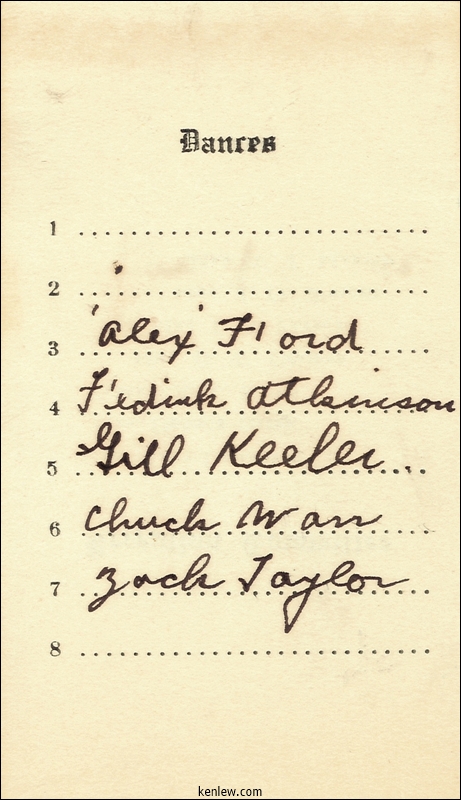 Dances
1 ........................
2 ........................
3 'Alex' Ford
4 Fredink Atkinson
5 Gill Keeler...
6 Chuck Warr
7 Zack Taylor
8 ........................
kenlew.com